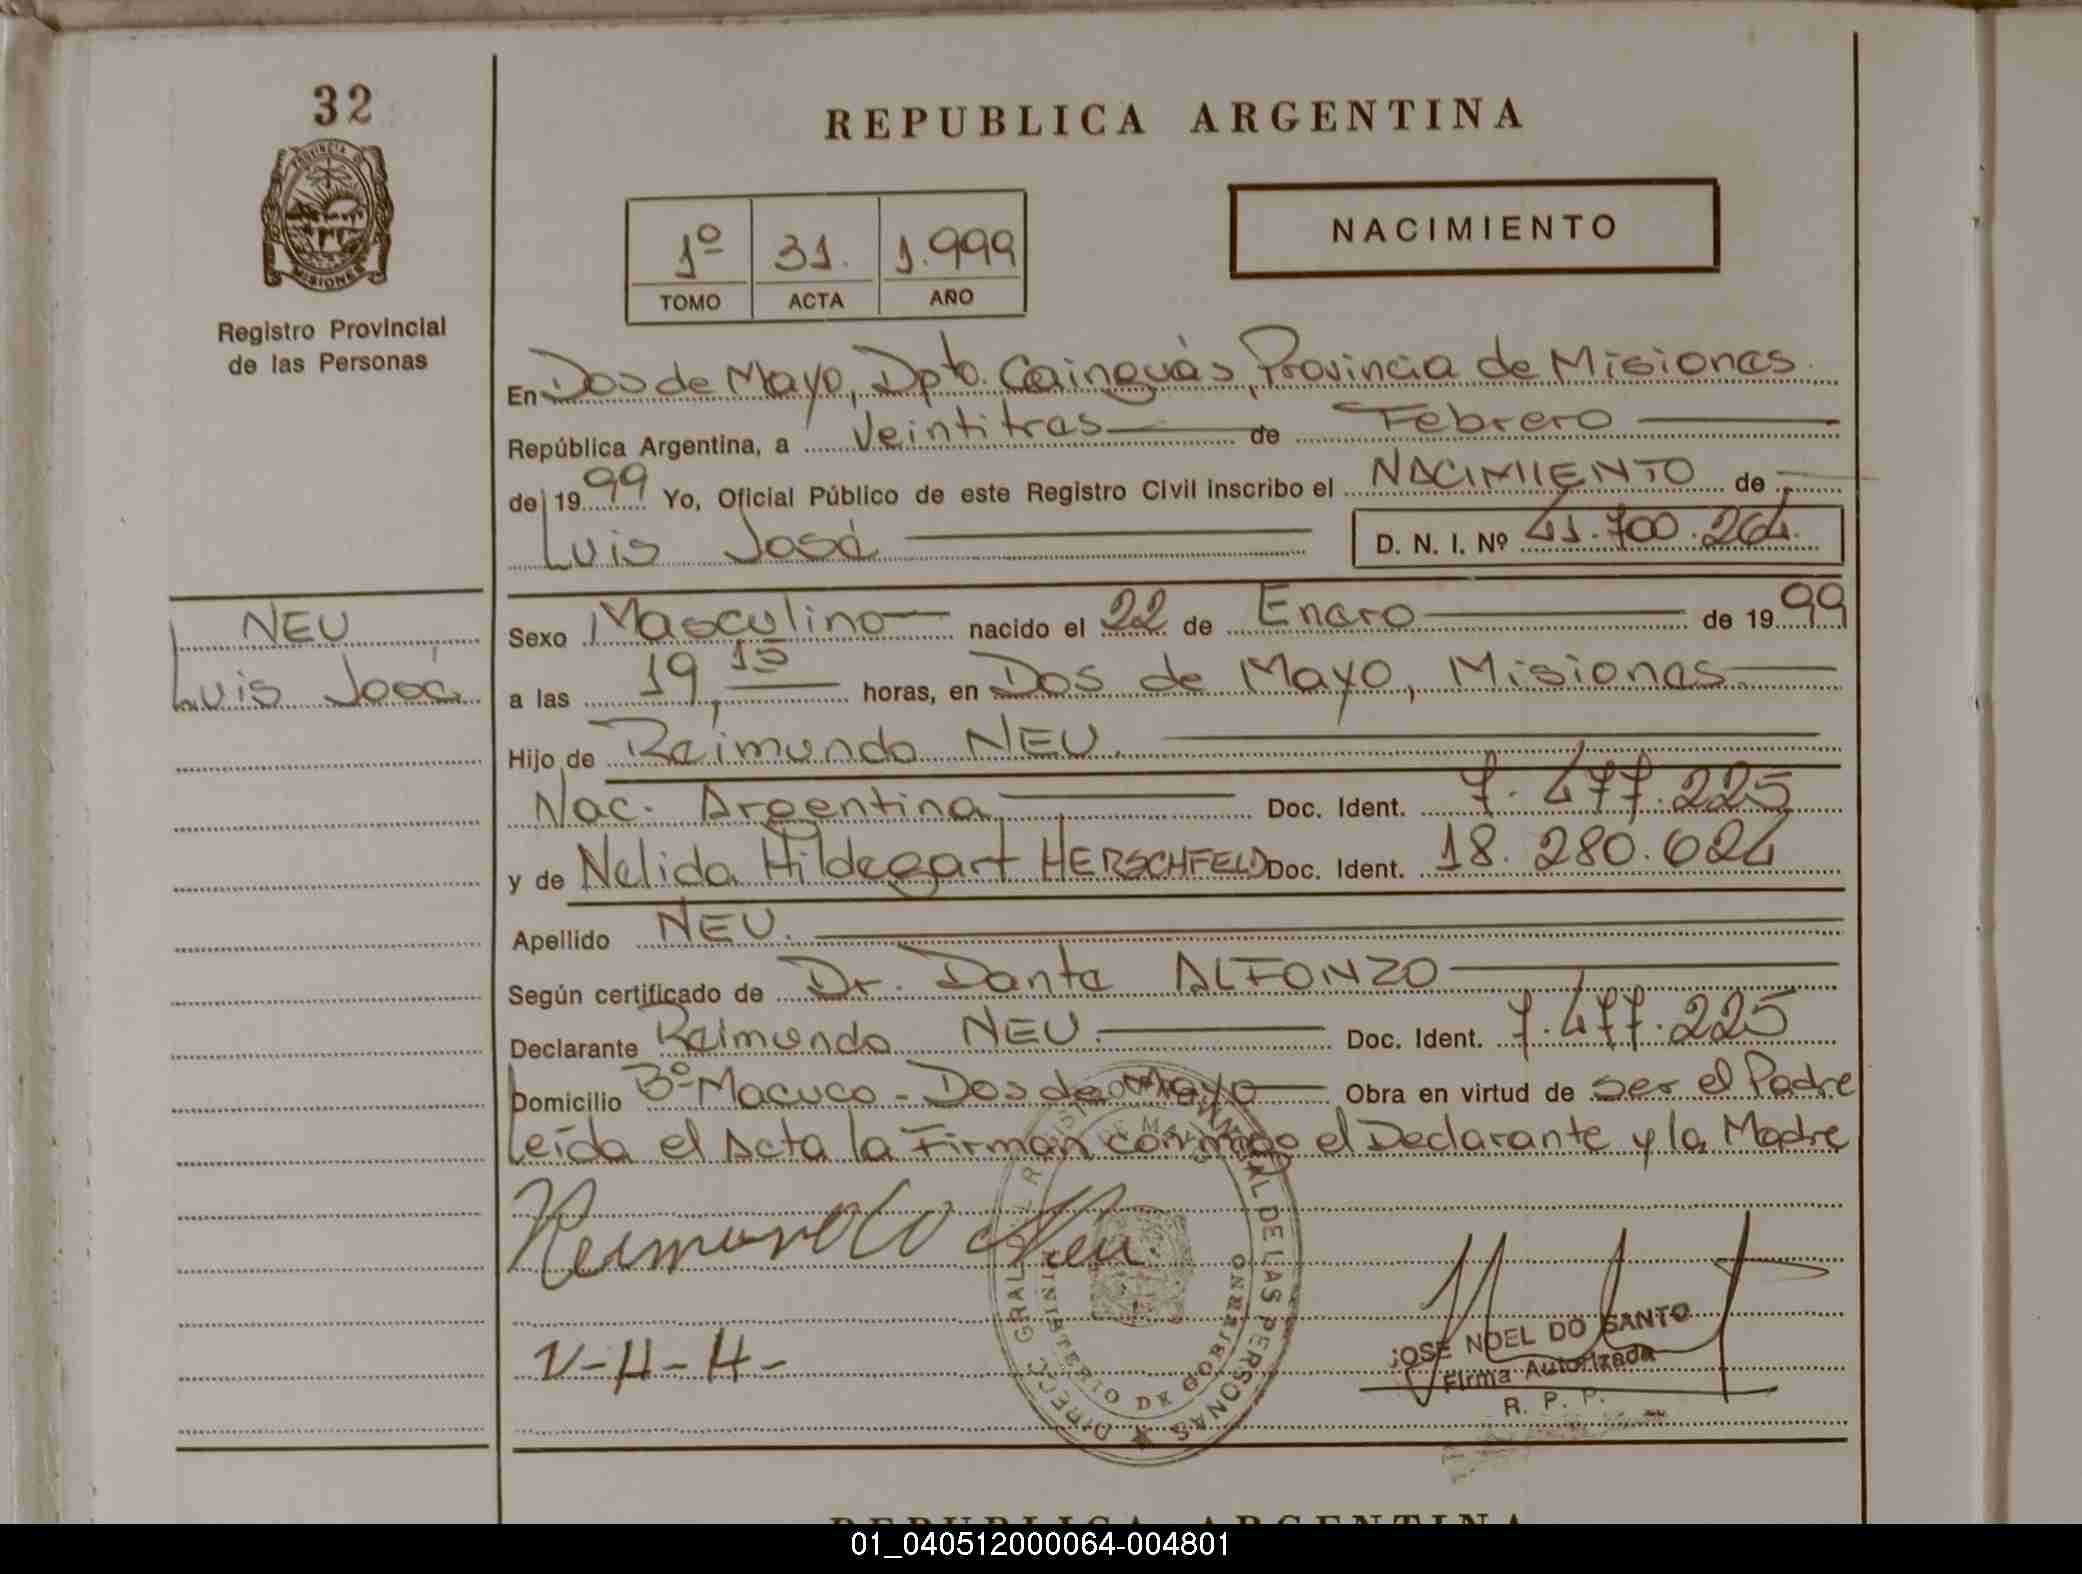 32
PROVINCIA DE
MISIONES
Registro Provincial
de las Personas
REPUBLICA ARGENTINA
1º 31. 1.999
TOMO ACTA AÑO
NACIMIENTO
En Dos de Mayo, Dpto. Cainguás, Provincia de Misiones.
República Argentina, a Veintitres de Febrero
de 19 99 Yo, Oficial Público de este Registro Civil inscribo el NACIMIENTO de
Luis José D. N. I. Nº 41.700.264.
NEU
Luis José
Sexo Masculino nacido el 22 de Enero de 19 99
a las 19,15 horas, en Dos de Mayo, Misiones
Hijo de Reimundo NEU.
Nac. Argentina Doc. Ident. 7.477.225
y de Nelida Hildegart HERSCHFELD Doc. Ident. 18.280.624
Apellido NEU.
Según certificado de Dr. Dante ALFONZO
Declarante Reimundo NEU. Doc. Ident. 7.477.225
Domicilio Bº Macuco - Dos de Mayo Obra en virtud de ser el Padre
Leída el Acta la Firman conmigo el Declarante y la Madre
Reimundo Neu
N-H-H-
DIRECC. GRAL. DEL REGISTRO PROVINCIAL DE LAS PERSONAS
MINISTERIO DE GOBIERNO
DOS DE MAYO
JOSE NOEL DO SANTO
Firma Autorizada
R. P. P.
REPUBLICA ARGENTINA
01_040512000064-004801